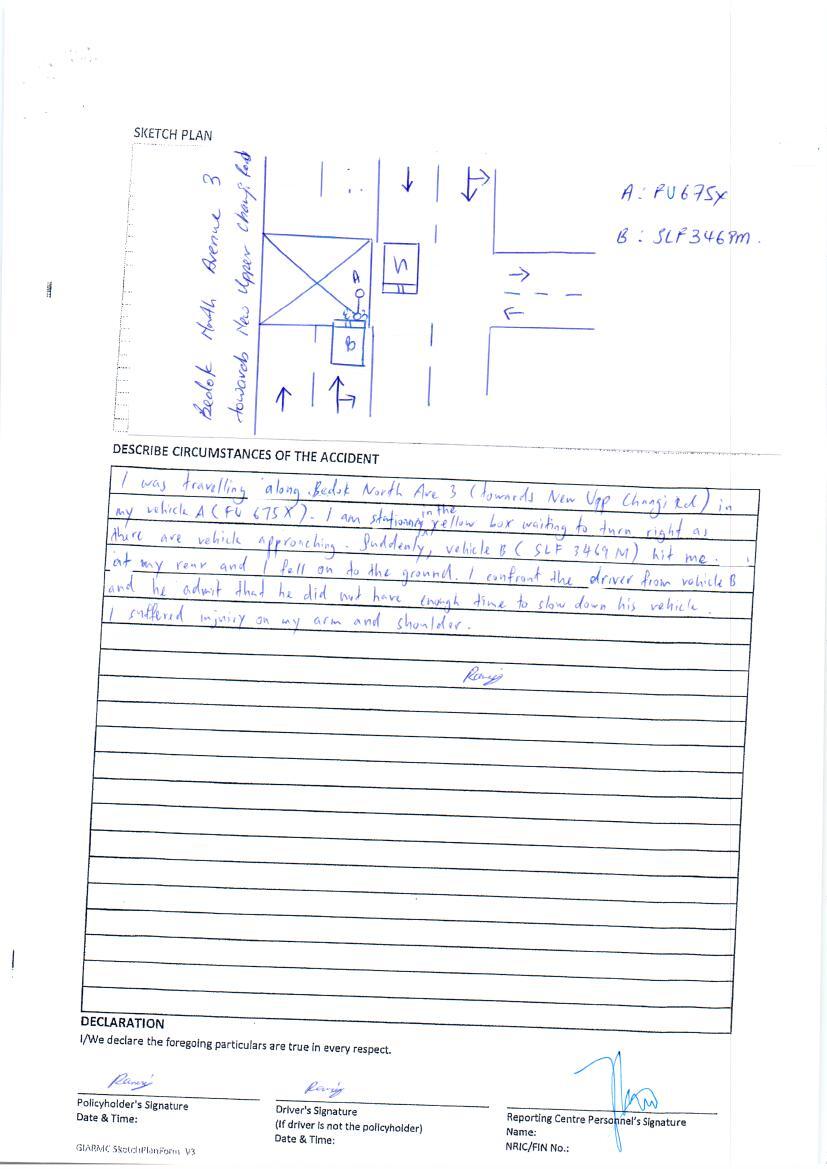 SKETCH PLAN
Bedok North Avenue 3
towards New Upper Changi Road
A
B
A : FU675X
B : SLF3469M.
DESCRIBE CIRCUMSTANCES OF THE ACCIDENT
I was travelling along Bedok North Ave 3 (towards New Upp Changi Rd) in
my vehicle A (FU 675X). I am stationary in the yellow box waiting to turn right as
there are vehicle approching. Suddenly, vehicle B (SLF 3469M) hit me
at my rear and I fell on to the ground. I confront the driver from vehicle B
and he admit that he did not have enough time to slow down his vehicle.
I suffered injury on my arm and shoulder.
DECLARATION
I/We declare the foregoing particulars are true in every respect.
Policyholder's Signature
Date & Time:
Driver's Signature
(If driver is not the policyholder)
Date & Time:
Reporting Centre Personnel's Signature
Name:
NRIC/FIN No.:
GIARMC SketchPlanForm V3